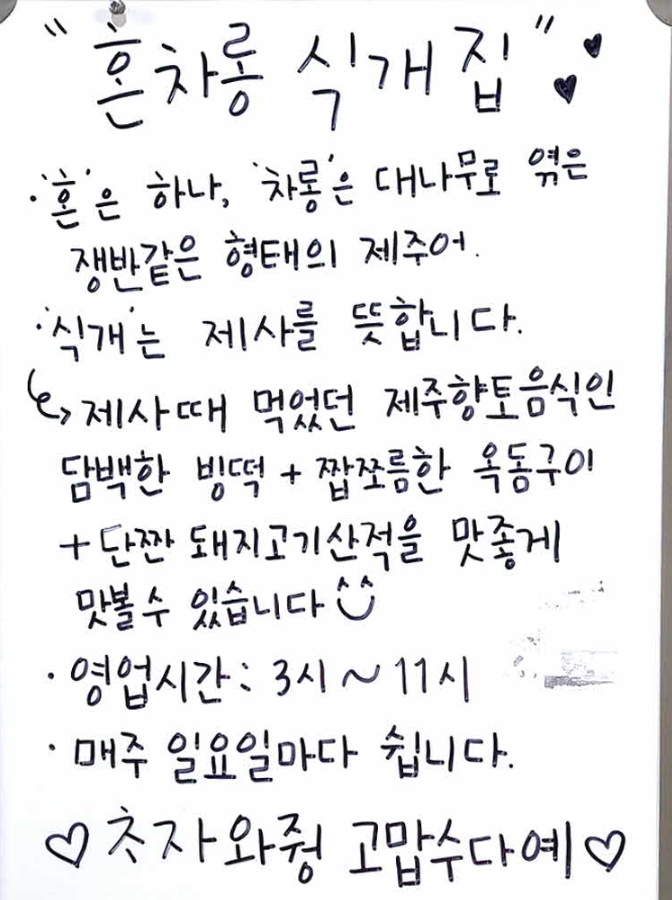 "혼차롱 식개집" ♥♥
·'혼'은 하나, '차롱'은 대나무로 엮은
쟁반같은 형태의 제주어.
·'식개'는 제사를 뜻합니다.
↳ 제사때 먹었던 제주향토음식인
담백한 빙떡 + 짭쪼름한 옥돔구이
+ 단짠 돼지고기산적을 맛좋게
맛볼수 있습니다^^
· 영업시간: 3시 ~ 11시
· 매주 일요일마다 쉽니다.
♡ 촛자와줭 고맙수다예 ♡